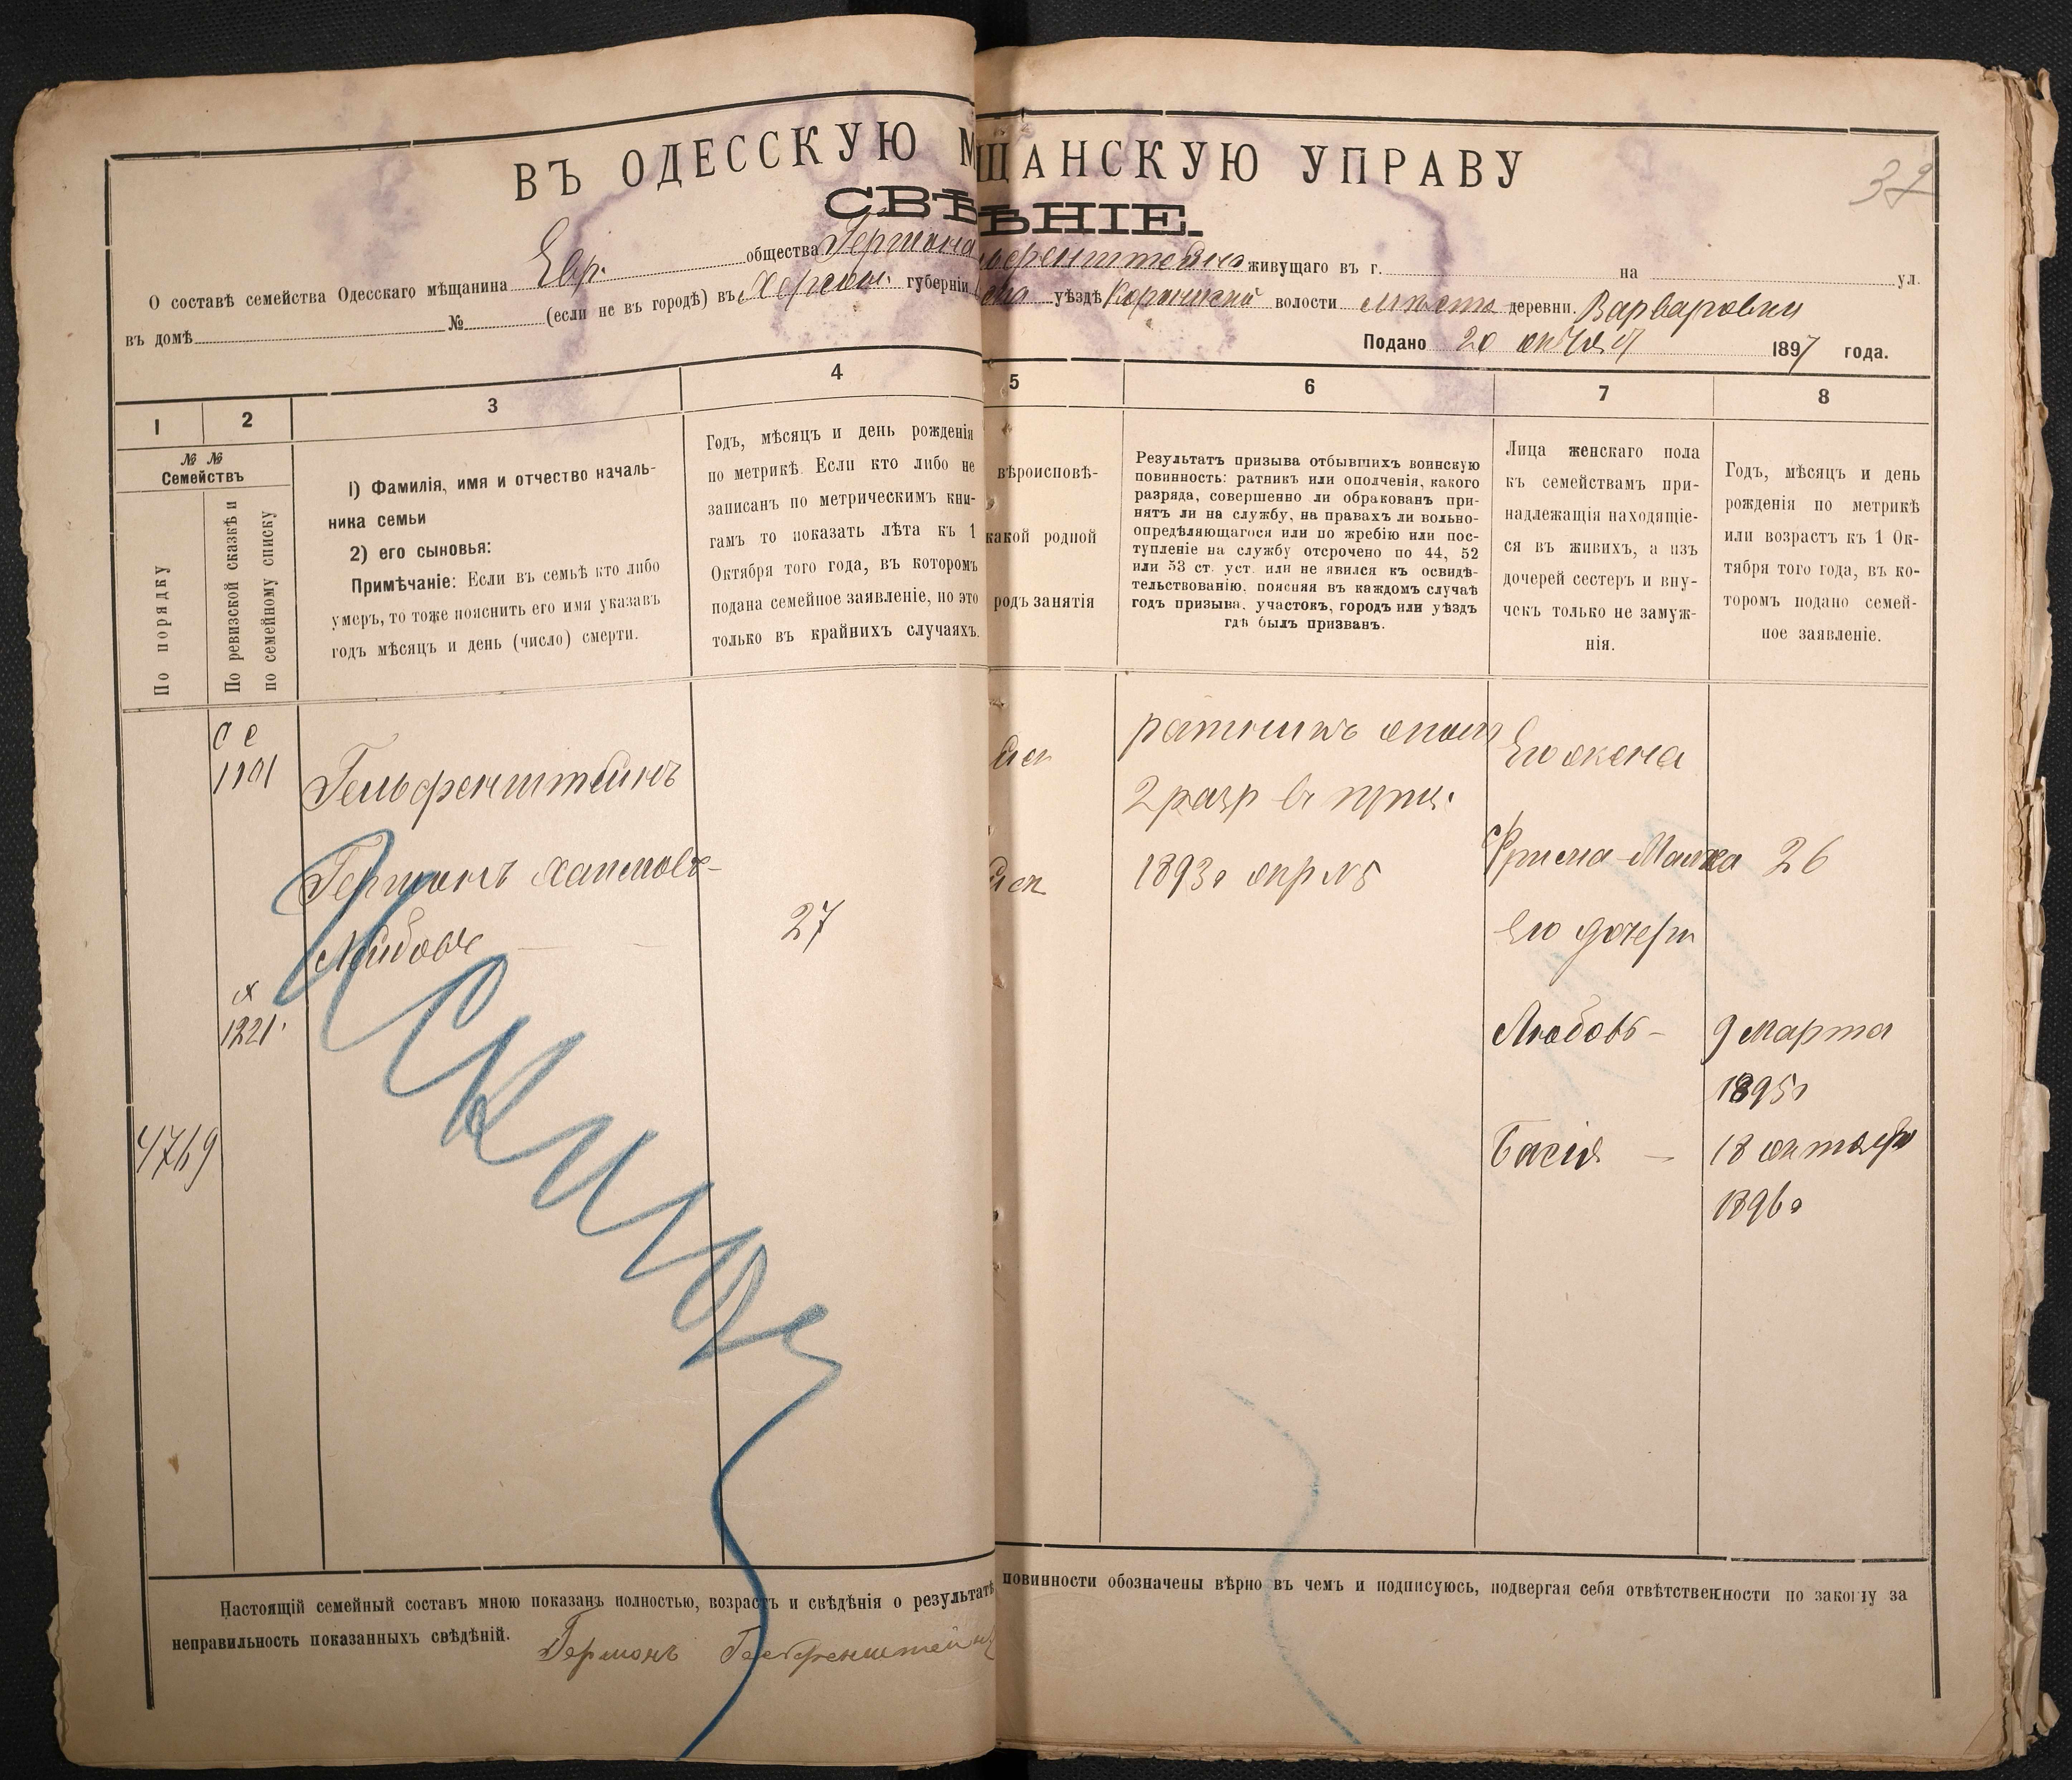 ВЪ ОДЕССКУЮ М ЩАНСКУЮ УПРАВУ
СВѢ ѢНІЕ.
39
О составѣ семейства Одесскаго мѣщанина Евр. общества Германа живущаго въ г. на ул.
въ домѣ № (если не въ городѣ) въ Херсон. губерніи уѣздѣ волости деревни. Варваровки
Подано 20 1897 года.
1 2 3 4 5 6 7 8
№ №
Семействъ
По порядку
По ревизской сказкѣ и
по семейному списку
1) Фамилія, имя и отчество началь-
ника семьи
2) его сыновья:
Примѣчаніе: Если въ семьѣ кто либо
умеръ, то тоже пояснить его имя указавъ
годъ мѣсяцъ и день (число) смерти.
Годъ, мѣсяцъ и день рожденія
по метрикѣ. Если кто либо не
записанъ по метрическимъ кни-
гамъ то показать лѣта къ 1
Октября того года, въ которомъ
подана семейное заявленіе, но это
только въ крайнихъ случаяхъ.
вѣроисповѣ-
какой родной
родъ занятія
Результатъ призыва отбывшихъ воинскую
повинность: ратникъ или ополченія, какого
разряда, совершенно ли обракованъ при-
нятъ ли на службу, на правахъ ли вольно-
опредѣляющагося или по жребію или пос-
тупленіе на службу отсрочено по 44, 52
или 53 ст. уст. или не явился къ освидѣ-
тельствованію, поясняя въ каждомъ случаѣ
годъ призыва, участокъ, городъ или уѣздъ
гдѣ былъ призванъ.
Лица женскаго пола
къ семействамъ при-
надлежащія находящіе-
ся въ живихъ, а изъ
дочерей сестеръ и вну-
чекъ только не замуж-
нія.
Годъ, мѣсяцъ и день
рожденія по метрикѣ
или возрастъ къ 1 Ок-
тября того года, въ ко-
торомъ подано семей-
ное заявленіе.
1101
Гельфенштейнъ
Германъ Хаимовъ-
Лейбовъ
27
1221
4769
ратникъ опол
2 разр въ приз.
1893г
Его жена
Фрима-Малка 26
Его дочери
Любовь - 9 Марта
1895г
Басія - 18 октября
1896г
Настоящій семейный составъ мною показанъ полностью, возрастъ и свѣдѣнія о результатѣ повинности обозначены вѣрно въ чемъ и подписуюсь, подвергая себя отвѣтственности по закону за
неправильность показанныхъ свѣдѣній. Германъ Гельфенштейнъ